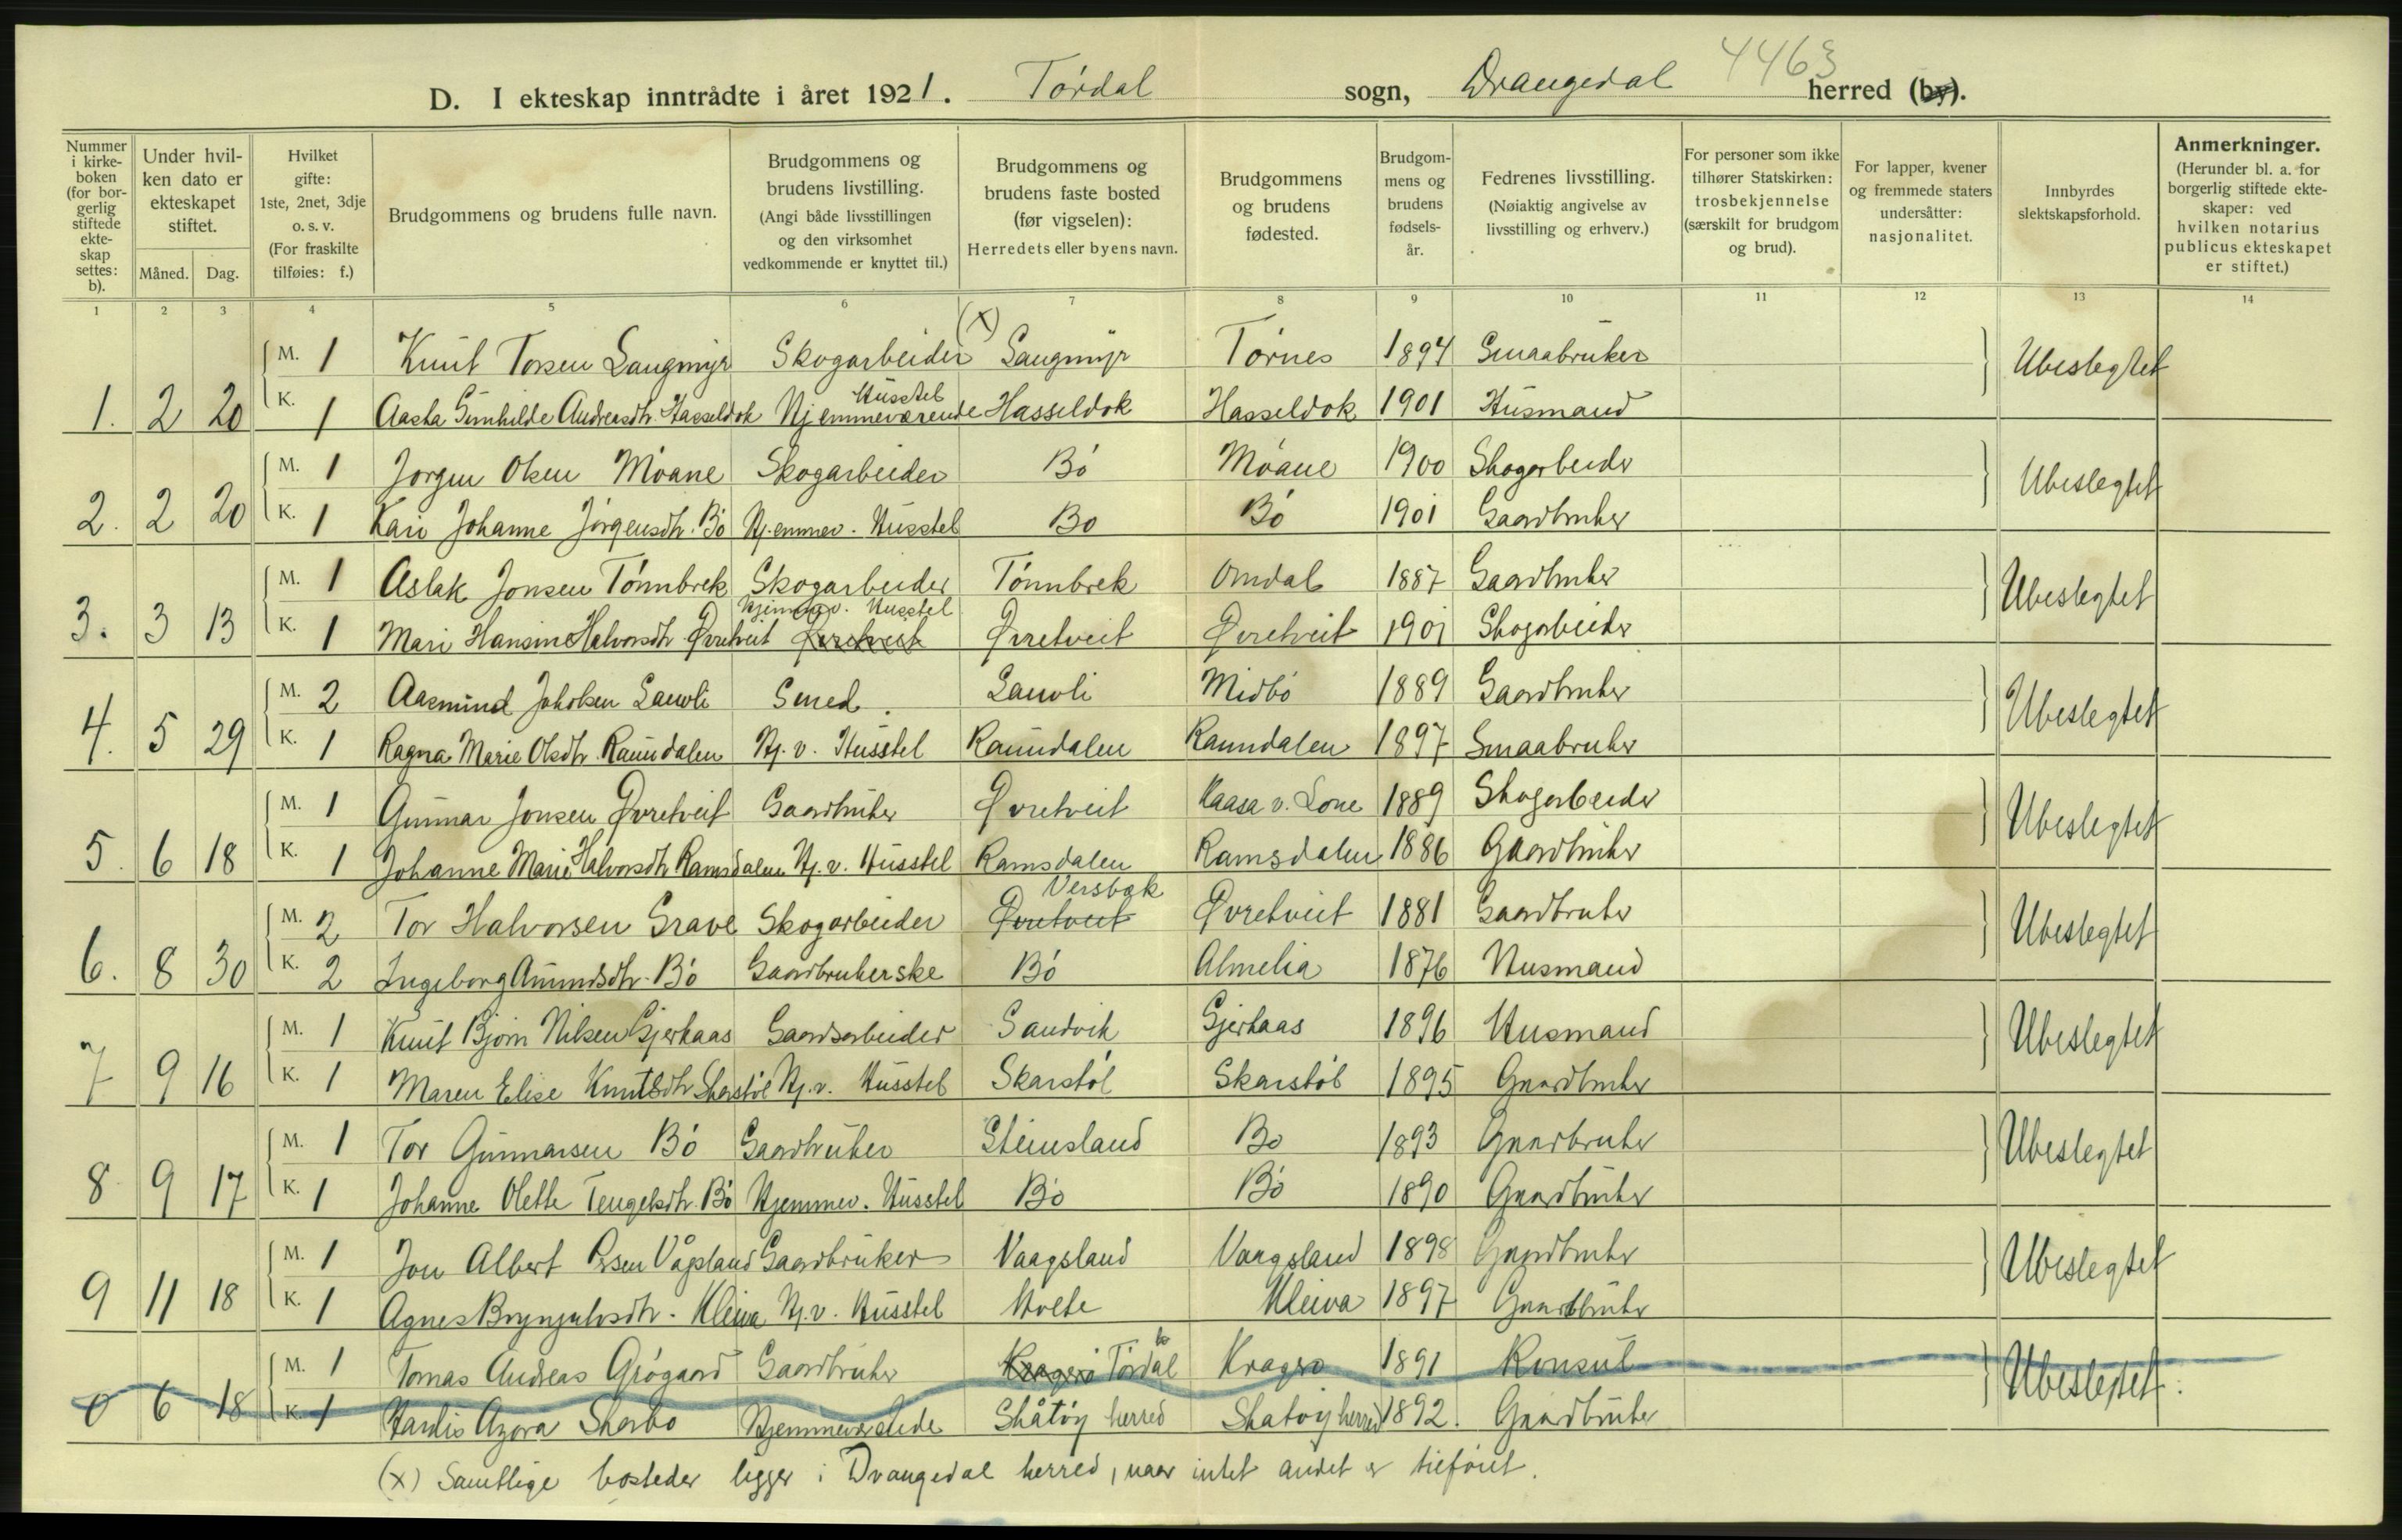 4463
D. I ekteskap inntrådte i året 1921. Tørdal sogn, Drangedal herred (by).
Nummer i kirkeboken (for borgerlig stiftede ekteskap settes: b).
Under hvilken dato er ekteskapet stiftet.
Måned. Dag.
Hvilket gifte: 1ste, 2net, 3dje o. s. v. (For fraskilte tilføies: f.)
Brudgommens og brudens fulle navn.
Brudgommens og brudens livstilling. (Angi både livsstillingen og den virksomhet vedkommende er knyttet til.)
Brudgommens og brudens faste bosted (før vigselen): Herredets eller byens navn.
Brudgommens og brudens fødested.
Brudgommens og brudens fødselsår.
Fedrenes livsstilling. (Nøiaktig angivelse av livsstilling og erhverv.)
For personer som ikke tilhører Statskirken: trosbekjennelse (særskilt for brudgom og brud).
For lapper, kvener og fremmede staters undersåtter: nasjonalitet.
Innbyrdes slektskapsforhold.
Anmerkninger. (Herunder bl. a. for borgerlig stiftede ekteskaper: ved hvilken notarius publicus ekteskapet er stiftet.)
1 2 3 4 5 6 7 8 9 10 11 12 13 14
(x)
M. 1 Knut Torsen Langmyr Skogarbeider Langmyr Tørnes 1894 Smaabruker Ubeslegtet
Husstel
1. 2 20 K. 1 Aasta Gunhilde Andreasdtr. Hasseldok Hjemmeværende Hasseldok Hasseldok 1901 Husmand
M. 1 Jørgen Olsen Moane Skogarbeider Bø Moane 1900 Skogarbeider Ubeslegtet
2. 2 20 K. 1 Kari Johanne Jørgensdtr. Bø Hjemmev. Husstel Bø Bø 1901 Gaardbruker
M. 1 Aslak Jonsen Tønnbrek Skogarbeider Tønnbrek Omdal 1887 Gaardbruker Ubeslegtet
Hjemmev. Husstel
3. 3 13 K. 1 Mari Hansine Halvorsdtr Øvretveit Øvretveit Øvretveit Øvretveit 1901 Skogarbeider
M. 2 Aasmund Jakobsen Lauvli Smed. Lauvli Midbø 1889 Gaardbruker Ubeslegtet
4. 5 29 K. 1 Ragna Marie Olsdtr. Raundalen Hj. v. Husstel Raundalen Raundalen 1897 Smaabruker
M. 1 Gunnar Jonsen Øvretveit Gaardbruker Øvretveit Kaasa v. Lone 1889 Skogarbeider Ubeslegtet
5. 6 18 K. 1 Johanne Marie Halvorsdtr Ramsdalen Hj. v. Husstel Ramsdalen Ramsdalen 1886 Gaardbruker
Versbæk
M. 2 Tor Halvorsen Grave Skogarbeider Øvretveit Øvretveit 1881 Gaardbruker Ubeslegtet
6. 8 30 K. 2 Ingeborg Amundsdtr. Bø Gaardbrukerske Bø Almelia 1876 Husmand
M. 1 Knut Bjørn Nilsen Gjerkaas Gaardsarbeider Sandvik Gjerkaas 1896 Husmand Ubeslegtet
7 9 16 K. 1 Maren Elise Knutsdtr Skarstøl Hj. v. Husstel Skarstøl Skarstøl 1895 Gaardbruker
M. 1 Tor Gunnarsen Bø Gaardbruker Steinsland Bø 1893 Gaardbruker Ubeslegtet
8 9 17 K. 1 Johanne Olette Tengelsdtr. Bø Hjemmev. Husstel Bø Bø 1890 Gaardbruker
M. 1 Jon Albert Persen Vågsland Gaardbruker Vaagsland Vaagsland 1898 Gaardbruker Ubeslegtet
9 11 18 K. 1 Agnes Brynjulvsdtr. Kleiva Hj. v. Husstel Holte Kleiva 1897 Gaardbruker
M. 1 Tomas Andreas Grøgaard Gaardbruker Kragerø Tørdal Kragerø 1891 Konsul Ubeslegtet.
0 6 18 K. 1 Hardis Azora Skarbo Hjemmeværende Skåtøy herred Skatøy herred 1892. Gaardbruker
(x) Samtlige bosteder ligger i Drangedal herred, naar intet andet er tilføiet.